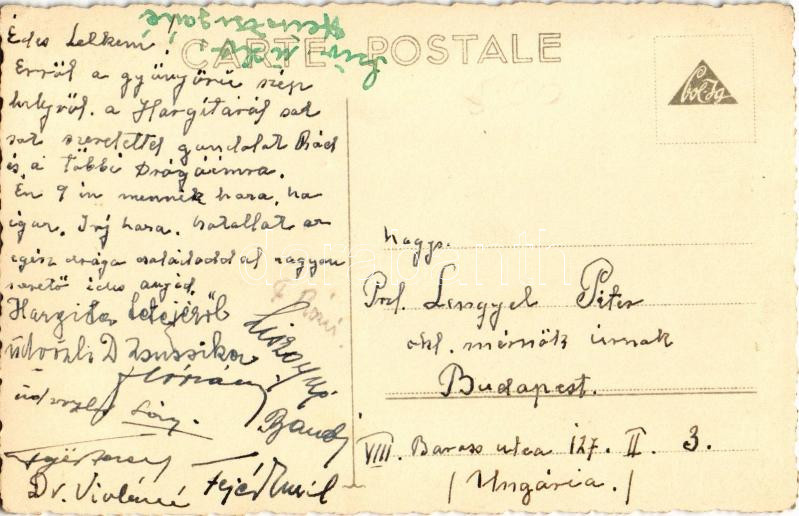 CARTE POSTALE
Édes Lelkem!
Erről a gyönyörű szép
helyről, a Hargitáról sok
sok szeretettel gondolok Rád
és a többi Drágáimra.
Én 9 in mennék haza, ha
igaz. Írj haza. hatallat az
egész drága családoddal nagyon
szerető édes anyád.
Hargita tetejéről
üdvözli D Zsuzsika
üdvözlet
Bandi
Dr. Violáné Fejér Emil
Colda
Nagys.
Prof. Lengyel Péter
okl. mérnök úrnak
Budapest.
VIII. Baross utca 127. II. 3.
(Ungária.)
darabanth